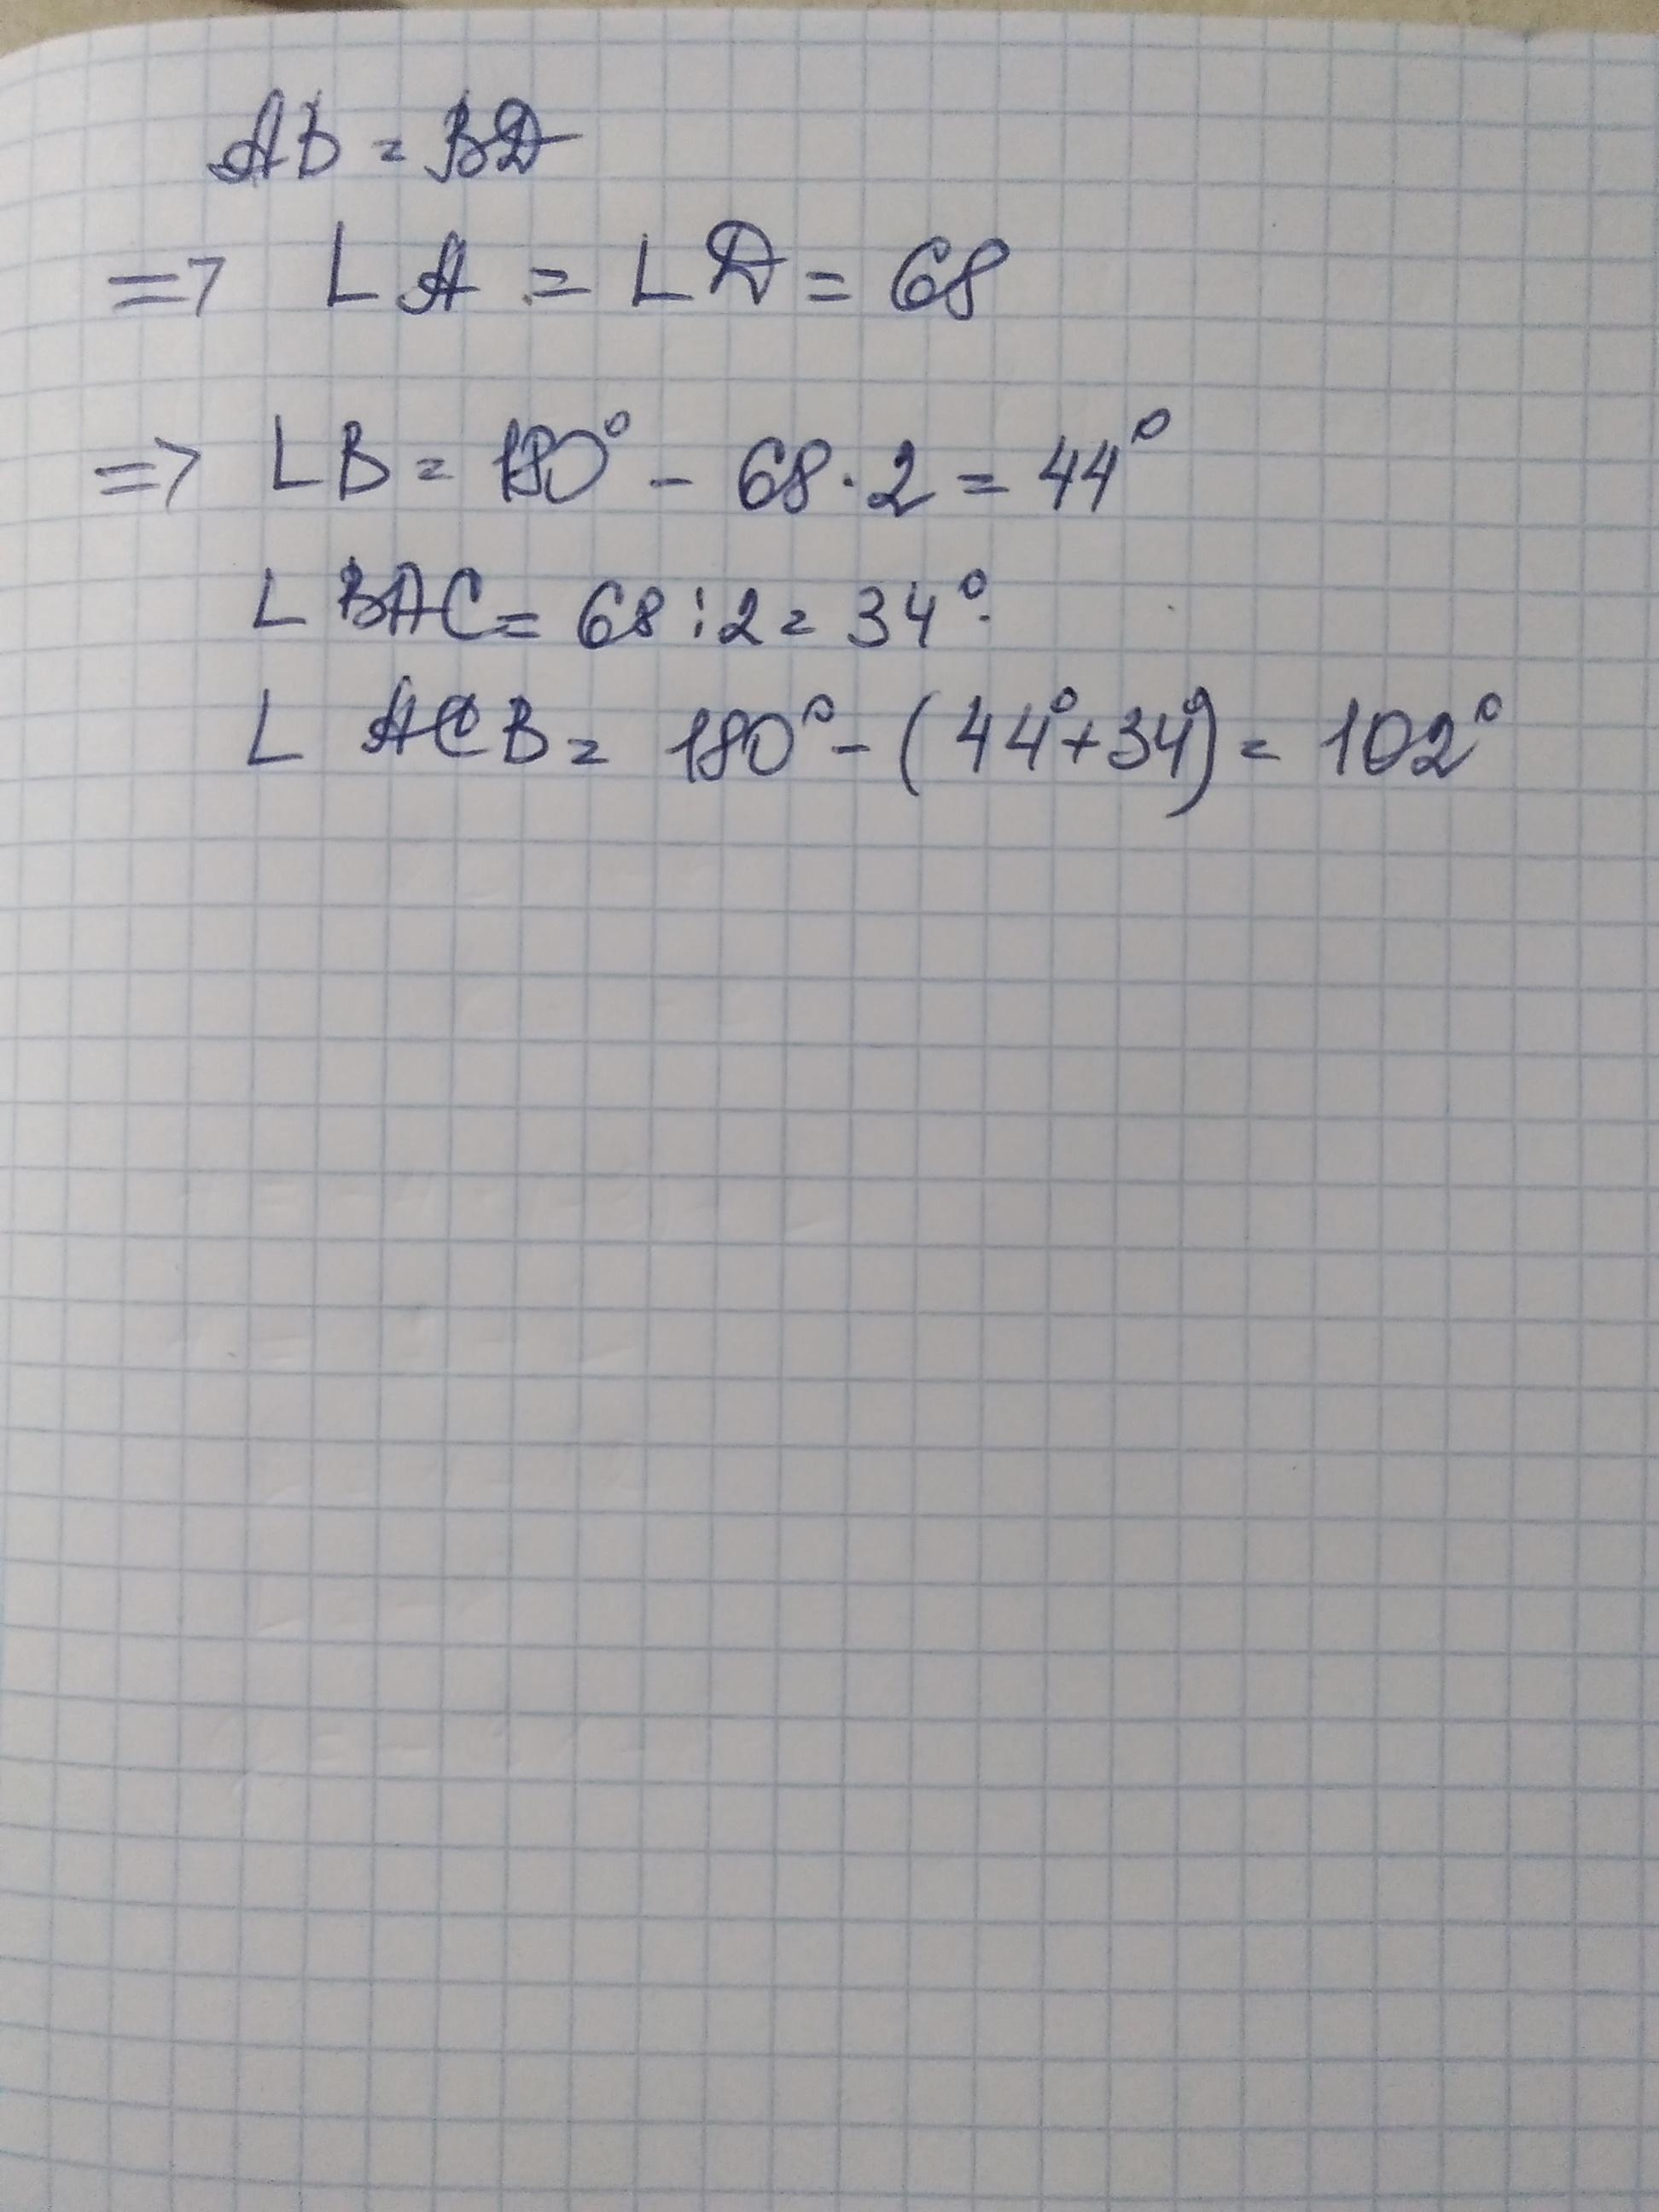 AB = BD
=> ∠A = ∠D = 68
=> ∠B = 180° - 68·2 = 44°
∠BAC = 68:2 = 34°
∠ACB = 180° - (44°+34°) = 102°